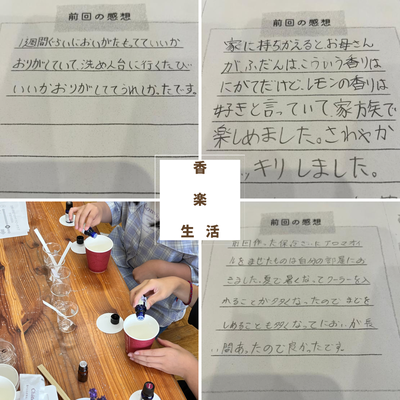 前回の感想
1週間ぐらいにおいがたもてていいか
おりがしていて、洗めん台に行くたび
いいかおりがしてうれしかったです。
前回の感想
家に持ちかえるとお母さん
が、ふだんはこういう香りは
にがてだけど、レモンの香りは
好きと言っていて、家族で
楽しめました。さわやか
ッキリしました。
香
楽
生活
前回の感想
前回作った保冷ざいにアロマオイ
ルをまぜたものは自分の部屋にお
きました。夏で暑くなってクーラーを入
れることが多くなったので、まどを
しめることも多くなってにおいが長
い間あったので良かったです。